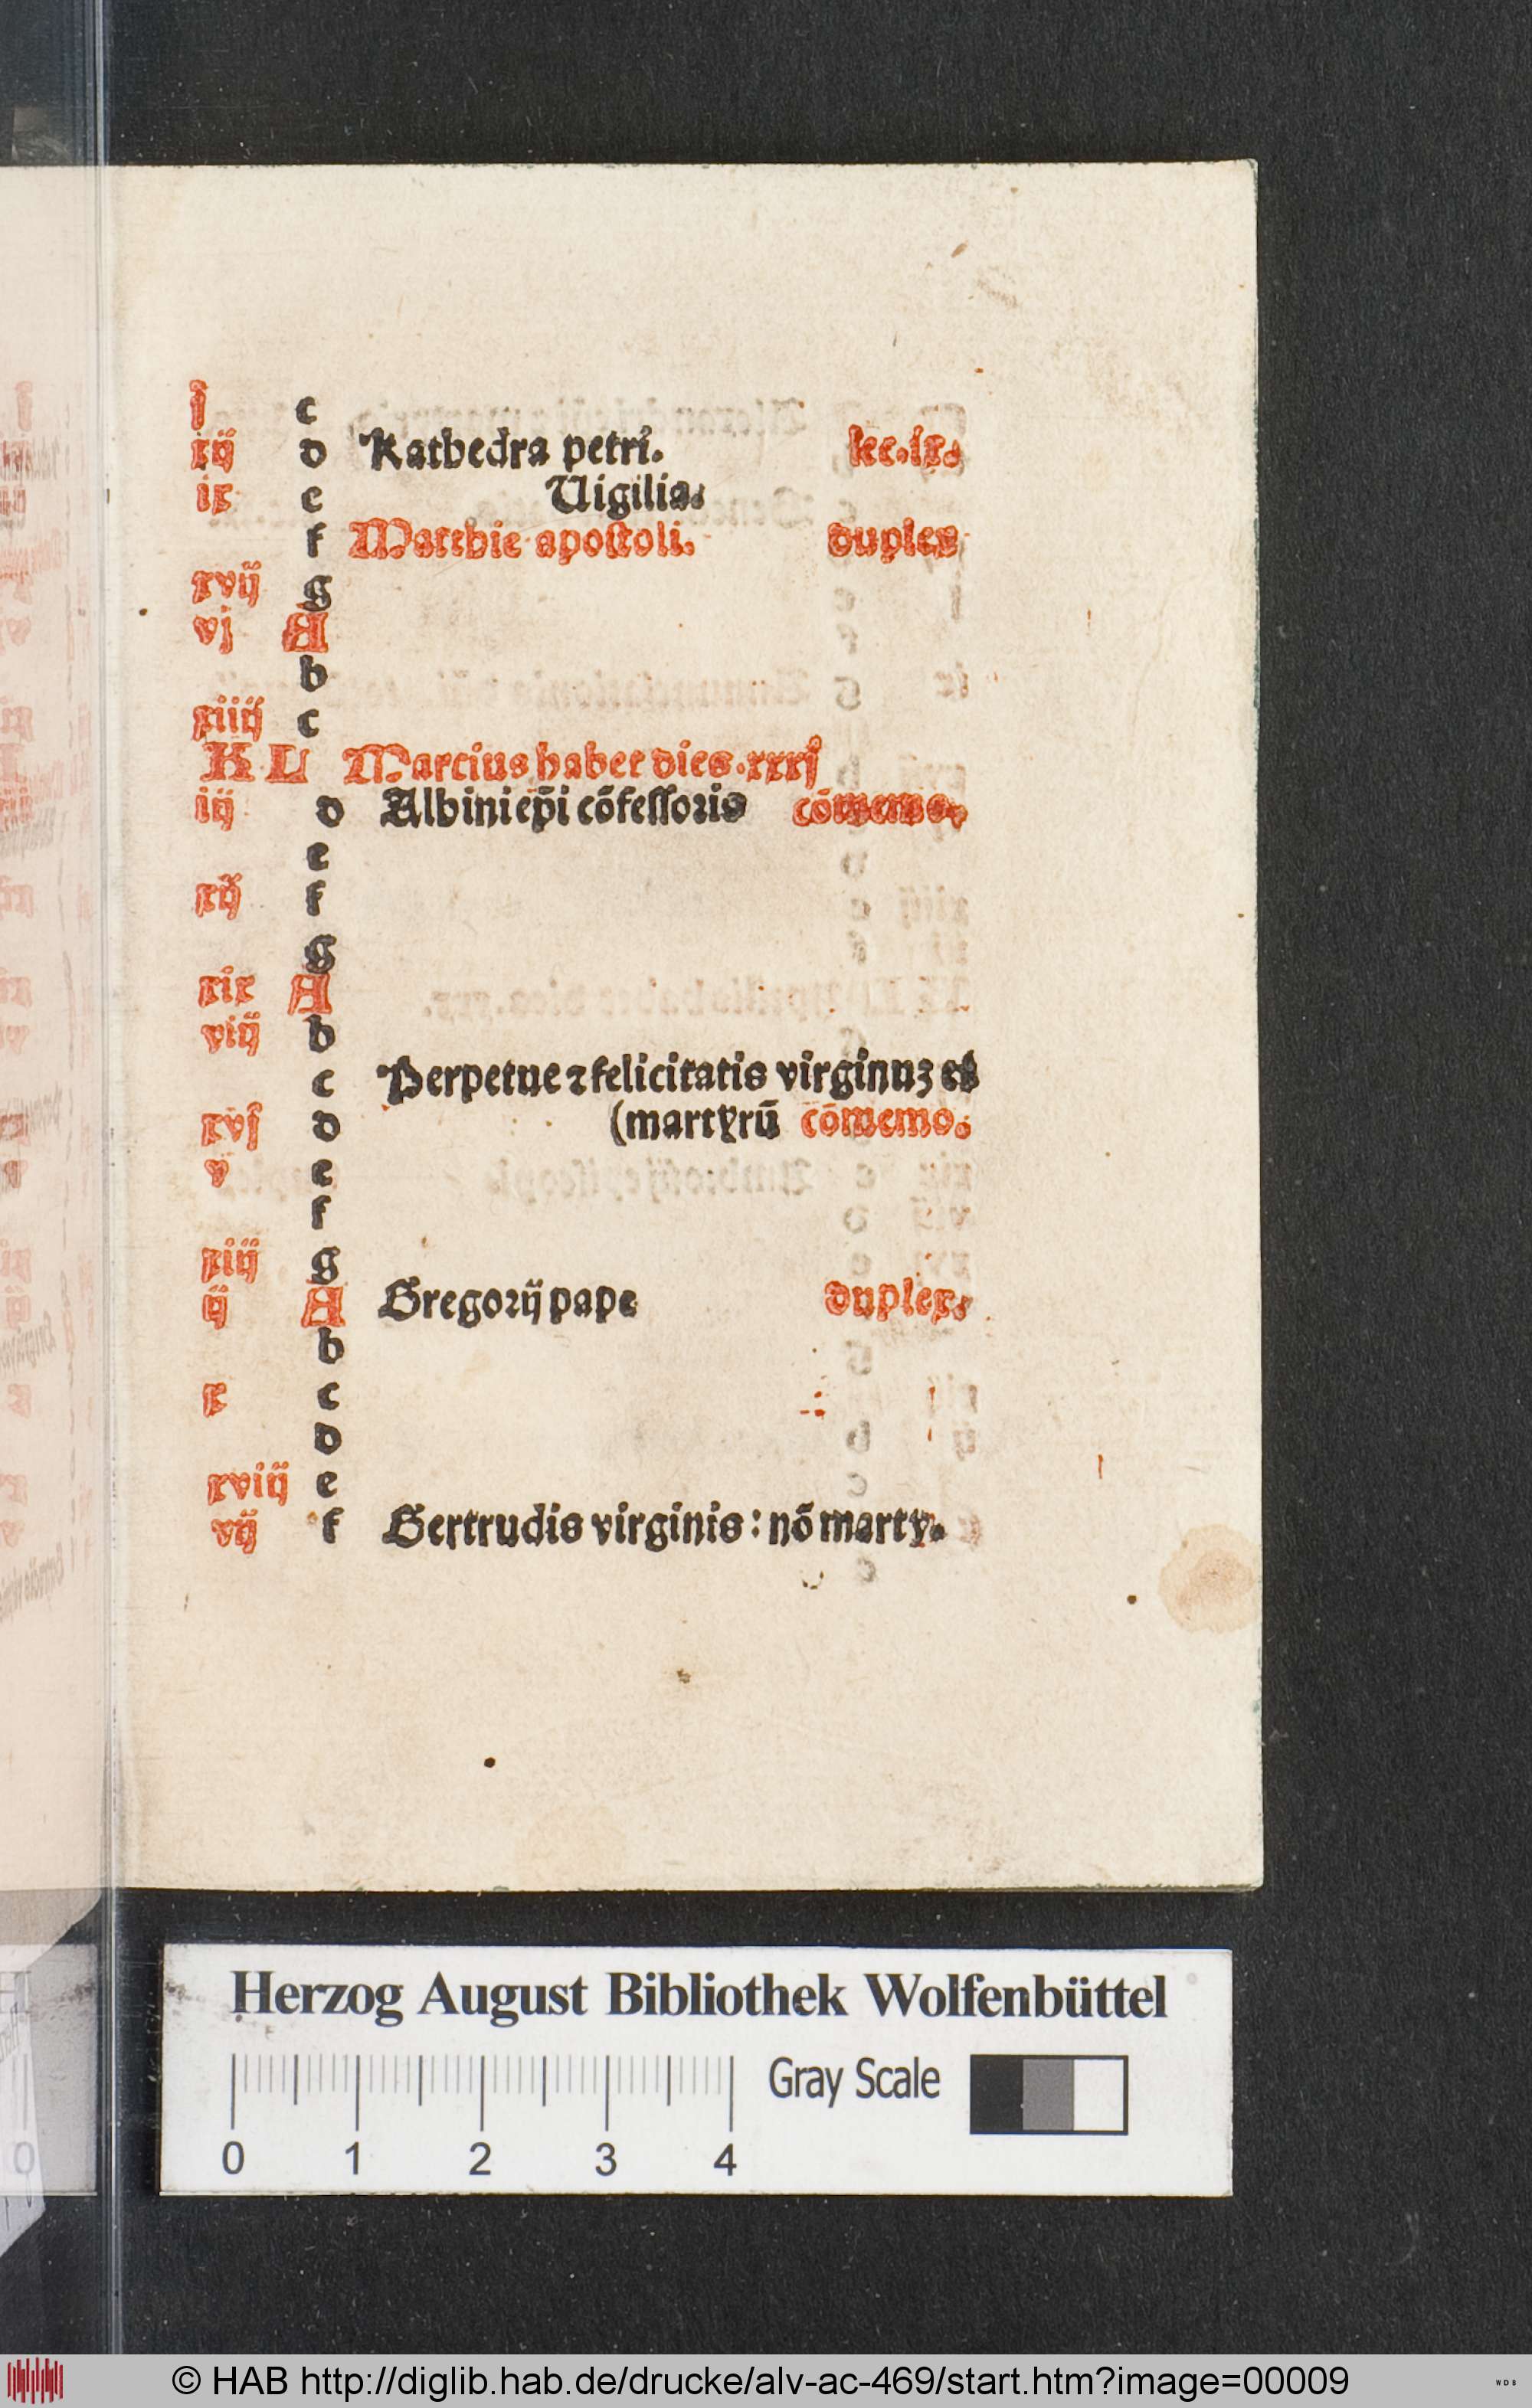 j c
xij d Kathedra petri. lec.ix.
ix e Uigilia.
f Matthie apostoli. duplex
xvij g
vj A
b
xiiij c
KL Marcius habet dies.xxxj
iij d Albini ep̄i cōfessoris cōmemo.
e
xij f
g
xix A
viij b
c Perpetue ⁊ felicitatis virginuꝫ et
xvj d (martyrū cōmemo.
v e
f
xiij g
ij A Gregorij pape duplex.
b
x c
d
xviij e
vij f Gertrudis virginis: nō marty.
Herzog August Bibliothek Wolfenbüttel
Gray Scale
0 1 2 3 4
© HAB http://diglib.hab.de/drucke/alv-ac-469/start.htm?image=00009